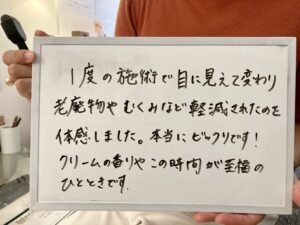 1度の施術で目に見えて変わり
老廃物やむくみなど軽減されたのを
体感しました。本当にビックリです!
クリームの香りやこの時間が至福の
ひとときです.